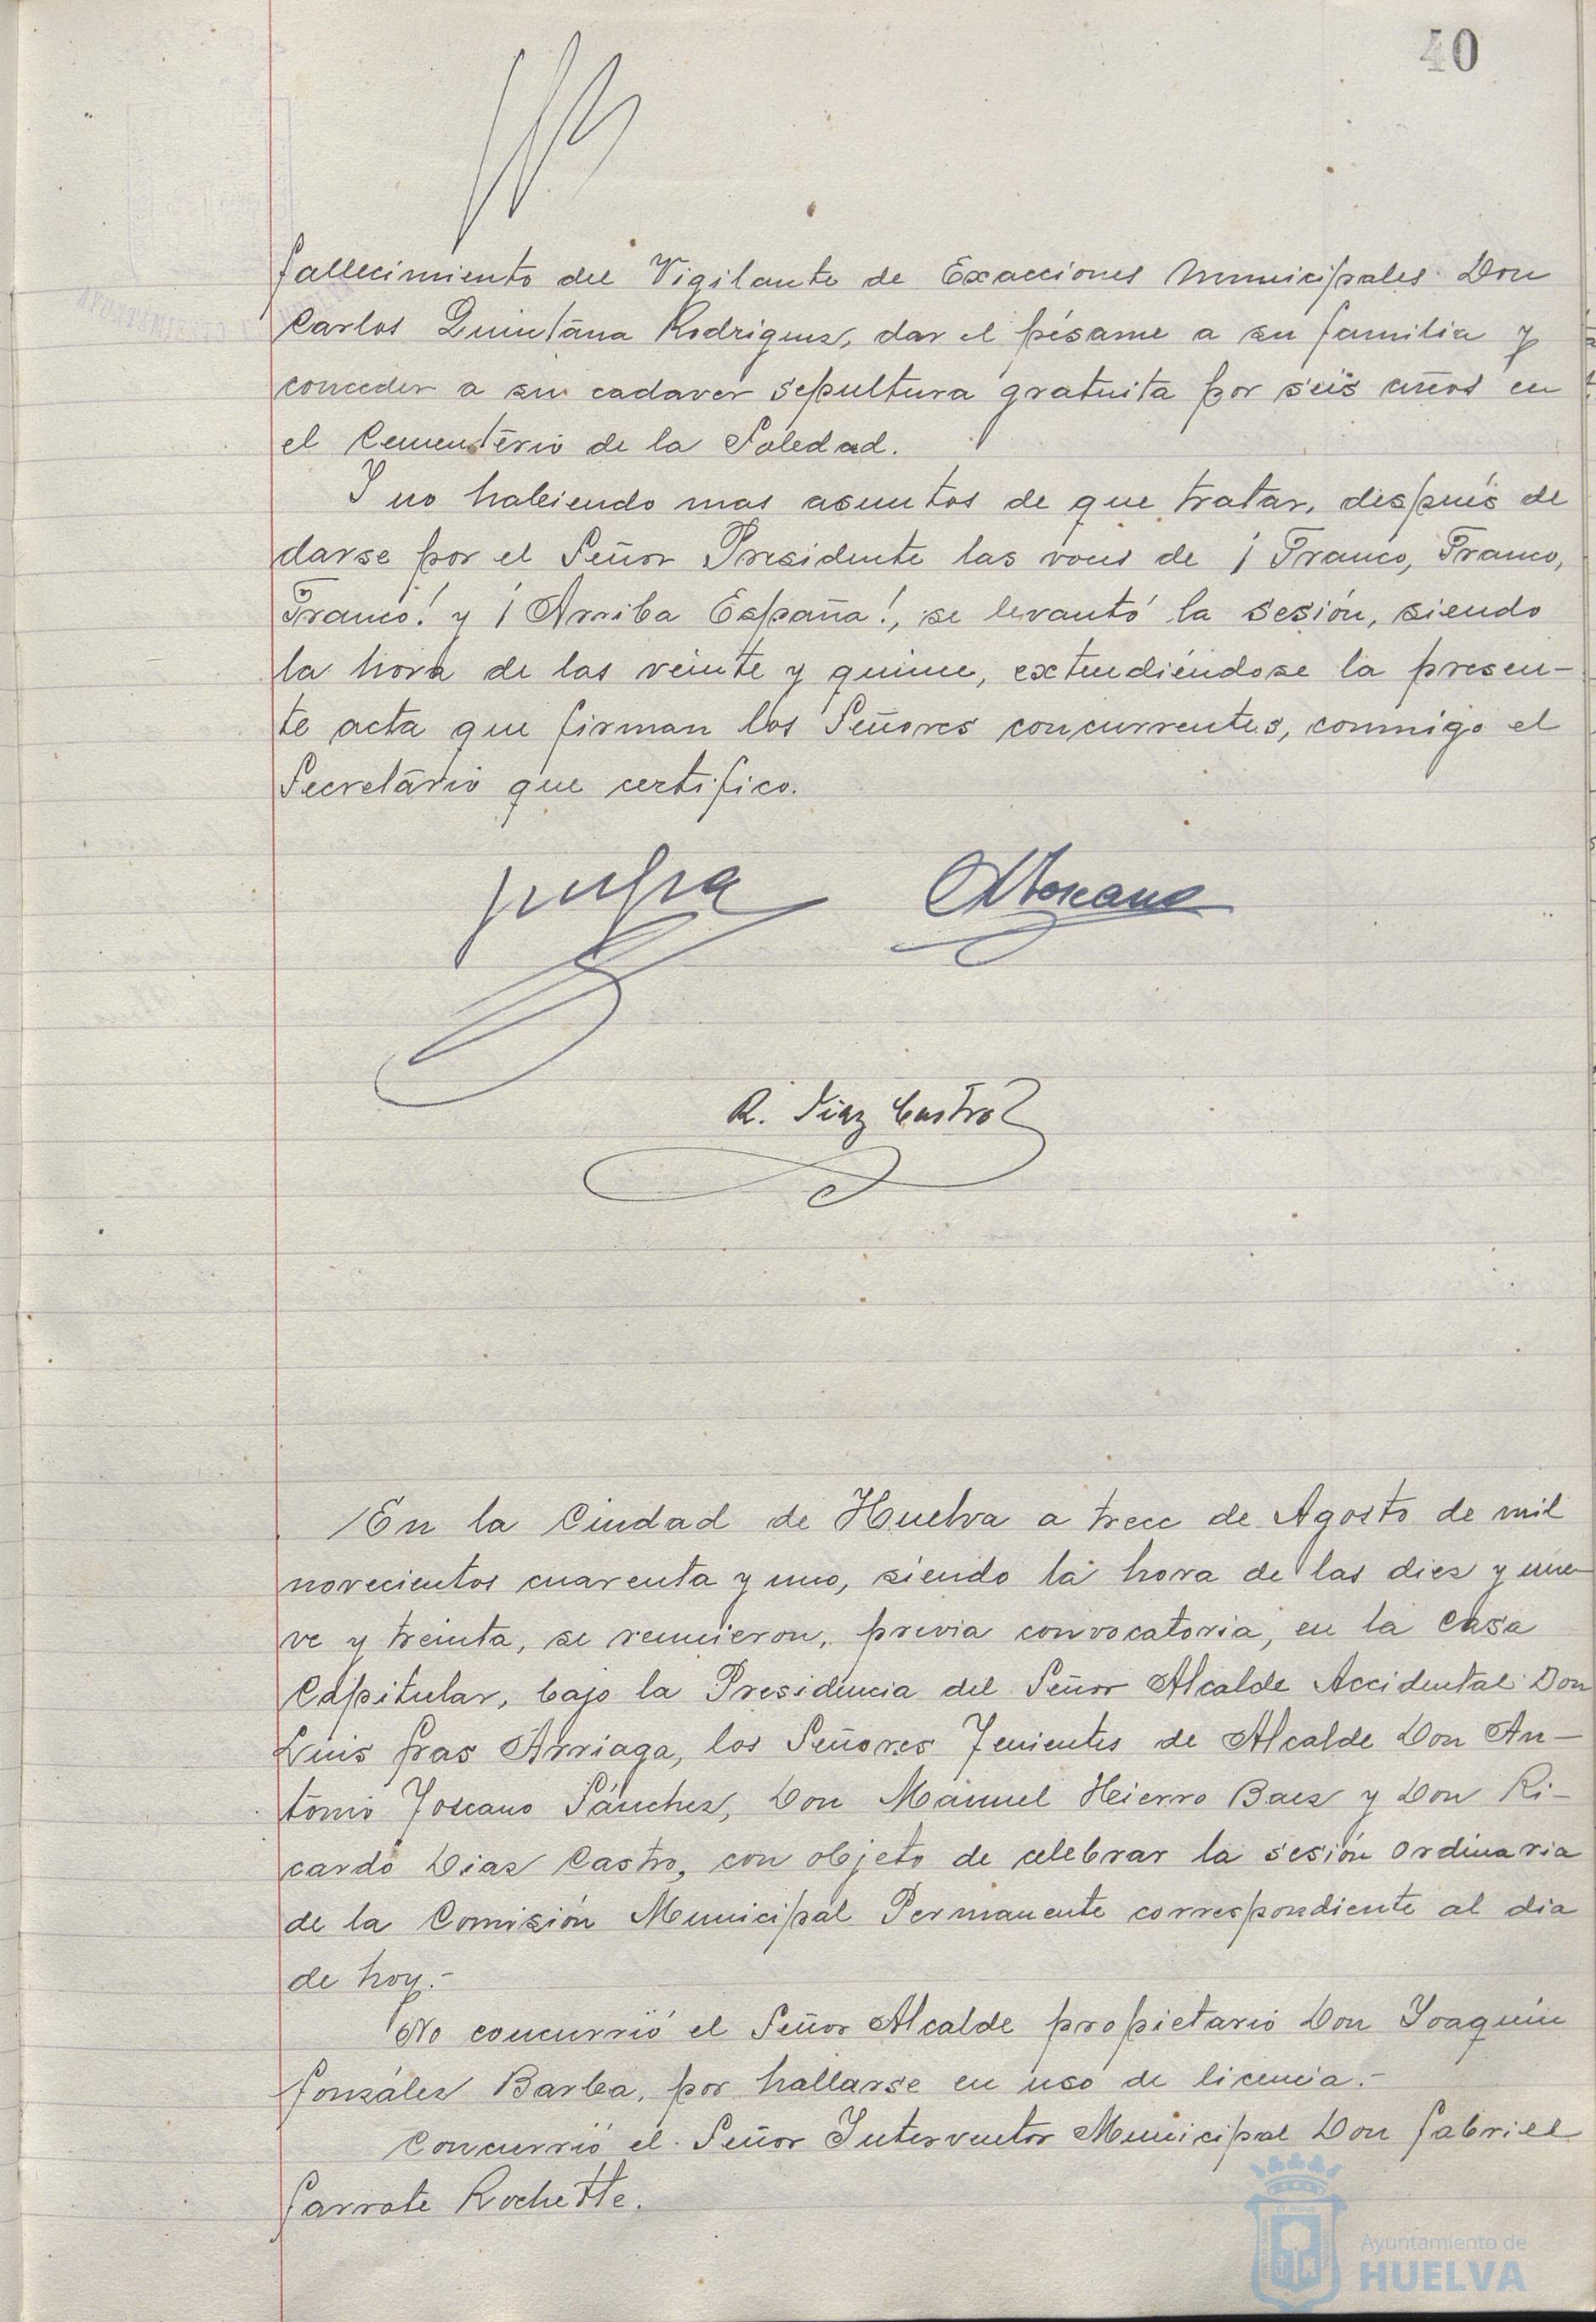 40
fallecimiento del Vigilante de Exacciones Municipales Don
Carlos Quintana Rodriguez, dar el pésame a su familia y
conceder a su cadaver sepultura gratuita por seis años en
el Cementerio de la Soledad.
Y no habiendo mas asuntos de que tratar, después de
darse por el Señor Presidente las voces de ¡Franco, Franco,
Franco! y ¡Arriba España!, se levantó la sesión, siendo
la hora de las veinte y quince, extendiéndose la presen-
te acta que firman los Señores concurrentes, conmigo el
Secretario que certifico.
AToscano
R. Diaz Castro
En la Ciudad de Huelva a trece de Agosto de mil
novecientos cuarenta y uno, siendo la hora de las diez y nue-
ve y treinta, se reunieron, previa convocatoria, en la Casa
Capitular, bajo la Presidencia del Señor Alcalde Accidental Don
Luis Gras Arriaga, los Señores Tenientes de Alcalde Don An-
tonio Toscano Sánchez, Don Manuel Hierro Baez y Don Ri-
cardo Diaz Castro, con objeto de celebrar la sesión ordinaria
de la Comisión Municipal Permanente correspondiente al dia
de hoy.-
No concurrió el Señor Alcalde propietario Don Joaquín
González Barba, por hallarse en uso de licencia.-
Concurrió el Señor Interventor Municipal Don Gabriel
Garrote Rochette.
Ayuntamiento de
HUELVA